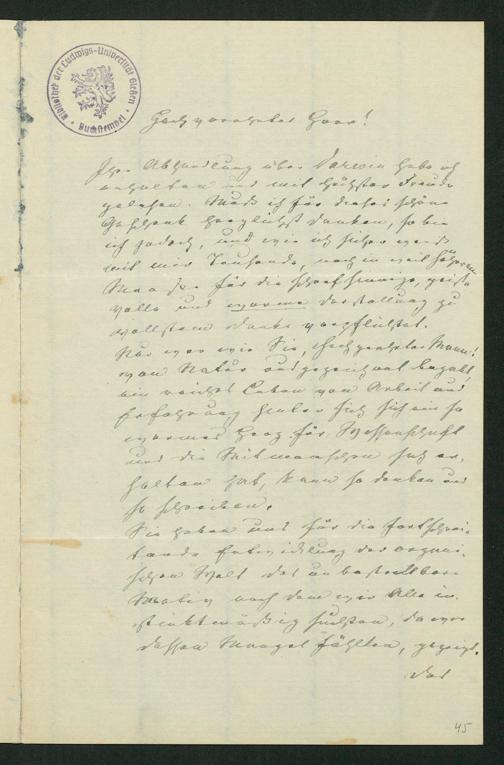 Bibliothek der Ludwigs-Universität Gießen
Buchstempel
Hochverehrter Herr!
Ihre Abhandlung über Darwin habe ich
erhalten und mit höchster Freude
gelesen. Muß ich für dieses schöne
Geschenk herzlichst danken, so bin
ich jedoch, und wie ich sicher weiß
mit mir Tausende, noch in weit höherem
Maaße für die scharfsinnige, geist-
volle und warme Darstellung zu
vollstem Danke verpflichtet.
Nur wer wie Sie, hochgeehrter Mann!
von Natur ausgezeichnet begabt,
ein reiches Leben von Arbeit und
Erfahrung hinter sich sich ein so
warmes Herz für Wissenschaft
und die Mitmenschen sich er-
halten hat, kann so denken und
so schreiben.
Sie haben uns für die fortschrei-
tende Entwicklung der organi-
schen Welt das unbestreitbare
Motiv nach dem wir Alle in-
stinktmäßig suchten, da wir
dessen Mangel fühlten, gezeigt.
Das
45